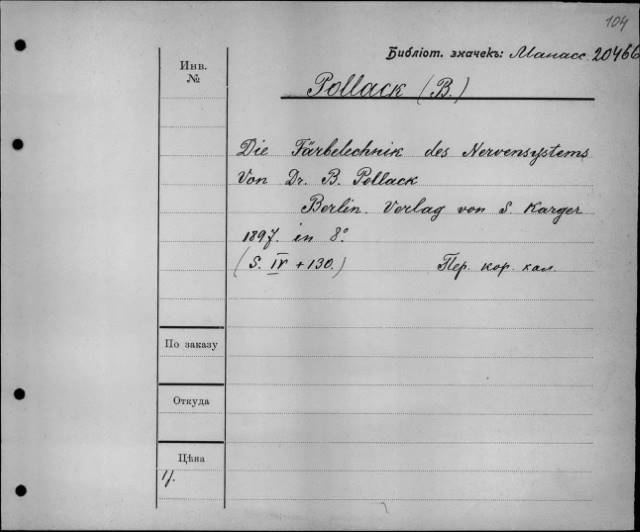 104
Библіот. значекъ: Манасс. 20466
Инв.
№
Pollack (B.)
Die Färbetechnik des Nervensystems
Von Dr. B. Pollack
Berlin. Verlag von S. Karger
1897. in 8º.
(S. IV + 130.) Пер. кор. кал.
По заказу
Откуда
Цѣна